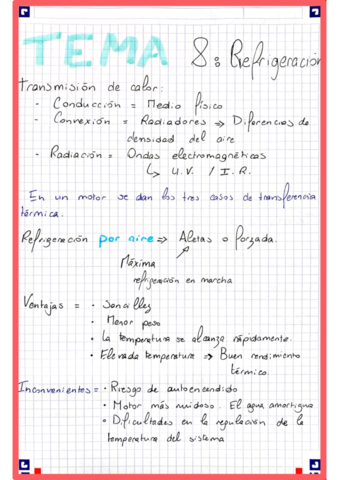 TEMA 8: Refrigeración
Transmisión de calor:
- Conducción = Medio físico
- Convexión = Radiadores => Diferencias de
densidad del aire
- Radiación = Ondas electromagnéticas
↳ U.V. / I.R.
En un motor se dan los tres casos de transferencia
térmica.
Refrigeración por aire => Aletas o forzada.
Máxima
refrigeración en marcha
Ventajas = · Sencillez
· Menor peso
· La temperatura se alcanza rápidamente.
· Elevada temperatura => Buen rendimiento
térmico.
Inconvenientes = · Riesgo de autoencendido
· Motor más ruidoso. El agua amortigua
· Dificultades en la regulación de la
temperatura del sistema